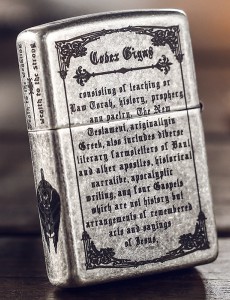 Codex Gigas
consisting of teaching or
Law Torah, history, prophecy
ann poetry. The New
Testament, originallgin
Greek, also includes diverse
literary formsletters of Paul
and other apostles, historical
narratibe, apocalyptic
writing, any four Gospels
which are not history but
arrangements of remembered
acts and sayings
of Jesus.
wealth to the strong